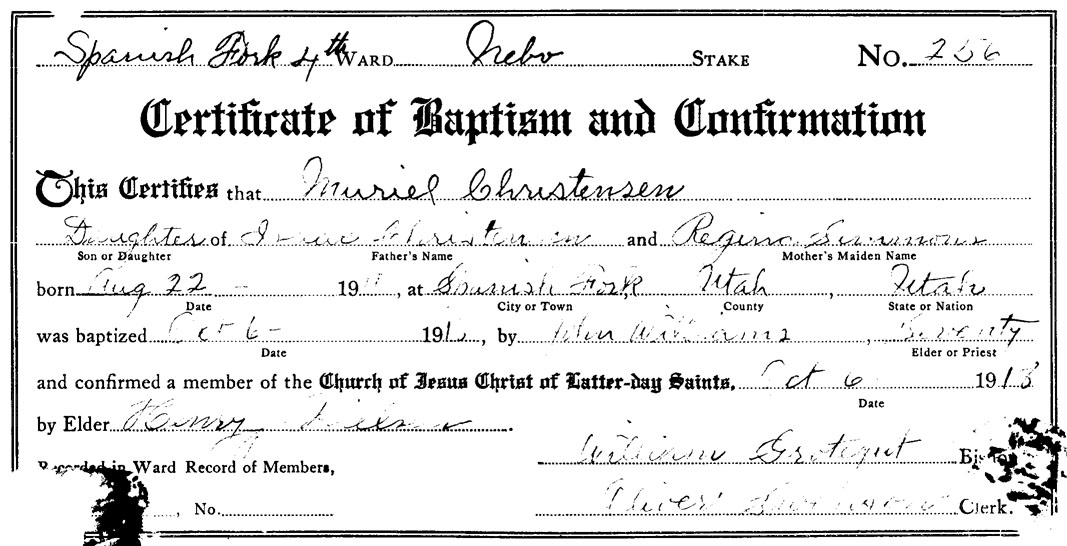 Spanish Fork 4th WARD Nebo STAKE NO. 256
Certificate of Baptism and Confirmation
This Certifies that Muriel Christensen
Daughter of Isaac Christensen and Regina Simmons
Son or Daughter Father's Name Mother's Maiden Name
born Aug 22 - 19, at Spanish Fork Utah, Utah
Date City or Town County State or Nation
was baptized Oct 6 - 191, by John Williams, Seventy
Date Elder or Priest
and confirmed a member of the Church of Jesus Christ of Latter-day Saints, Oct 6 1918
Date
by Elder Henry.
Recorded in Ward Record of Members, William Grotegut Bishop
, No. Clerk.